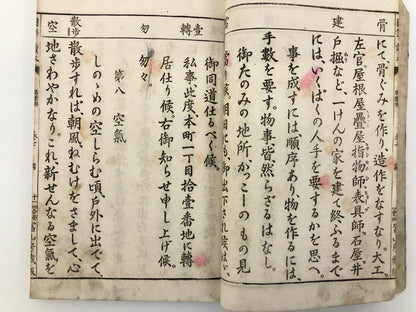 骨
建
にて骨ぐみを作り、造作をなすなり。大工、
左官、屋根屋、疊屋、指物師、表具師、石屋、井
戶掘など、一けんの家を建て終ふるまで
には、いくばくの人手を要するかを思へ。
事を成すには、順序あり、物を作るには、
手數を要す。物事、皆然らざるはなし。
御たのみの地所、かっこーのもの見
當り候。明日にも、御出下され候はゞ、
壹
轉
勿
散步
空
御同道仕るべく候。
私事此度本町一丁目拾壹番地に轉
居仕り候。右御知らせ申し上げ候。
勿々。
第八 空氣
しのゝめの空しらむ頃、戶外に出でて、
散步すれば、朝風ねむけをさまして、心
地さわやかなり。これ、新せんなる空氣を